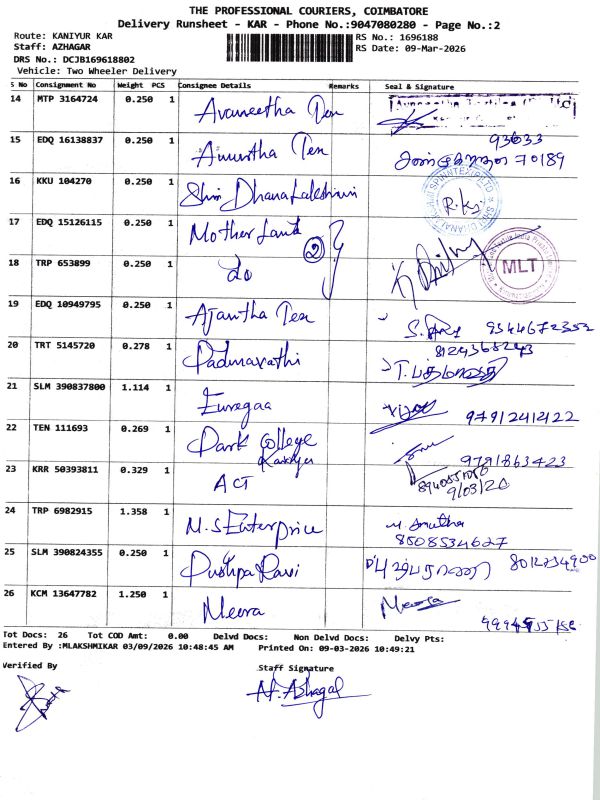 THE PROFESSIONAL COURIERS, COIMBATORE
Delivery Runsheet - KAR - Phone No.:9047080280 - Page No.:2
Route: KANIYUR KAR
RS No.: 1696188
Staff: AZHAGAR
RS Date: 09-Mar-2026
DRS No.: DCJB169618802
Vehicle: Two Wheeler Delivery
S No Consignment No Weight PCS Consignee Details Remarks Seal & Signature
14 MTP 3164724 0.250 1
15 EDQ 16138837 0.250 1 93633
70189
16 KKU 104270 0.250 1 Shri Dhanalakshmi
R.K
17 EDQ 15126115 0.250 1 Mother Land
2
MLT
18 TRP 653899 0.250 1 do
19 EDQ 10949795 0.250 1 Ajantha Tex 9344672352
20 TRT 5145720 0.278 1 Padmavathi
21 SLM 390837800 1.114 1 9791241222
22 TEN 111693 0.269 1 Park College
9791863423
23 KRR 50393811 0.329 1 ACT
24 TRP 6982915 1.358 1 M.S Enterprice
8508534627
25 SLM 390824355 0.250 1 Pushpa Ravi 8012234900
26 KCM 13647782 1.250 1 Meera Meera
Tot Docs: 26 Tot COD Amt: 0.00 Delvd Docs: Non Delvd Docs: Delvy Pts:
Entered By :MLAKSHMIKAR 03/09/2026 10:48:45 AM Printed On: 09-03-2026 10:49:21
Verified By Staff Signature